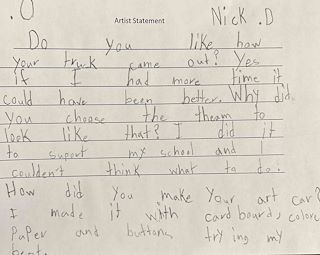 .O
Nick .D
Artist Statement
Do you like how
your trunk came out? Yes
if I had more time it
could have been better. Why did
you choose the theam to
look like that? I did it
to suport my school and I
coulden't think what to do.
How did you make your art car?
I made it with card board, colore
Paper and buttons, trying my
best.